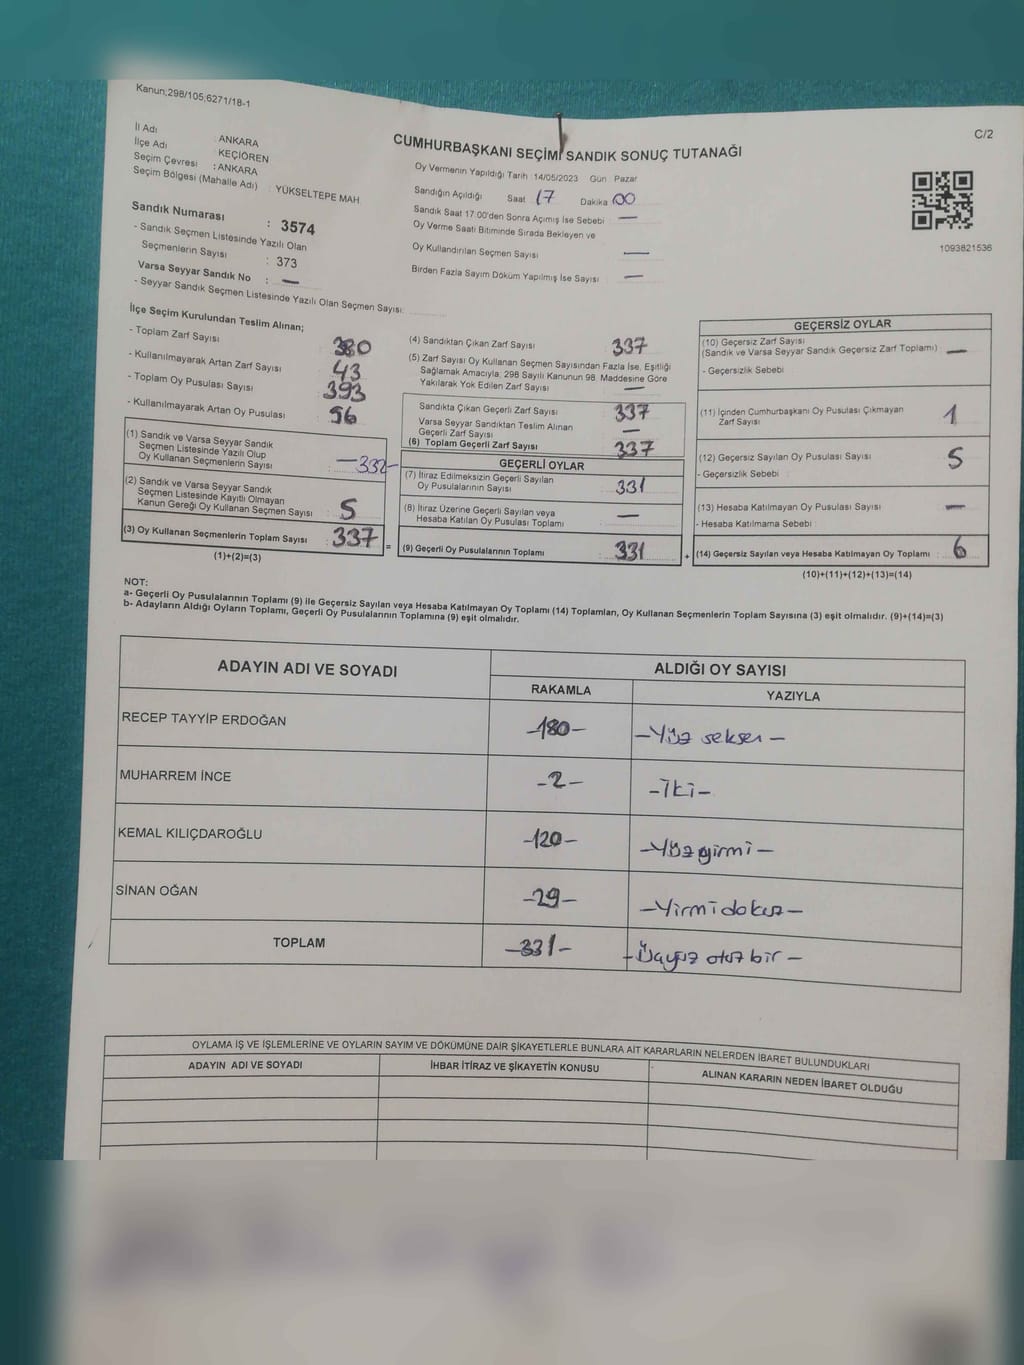 Kanun;298/105;6271/18-1
C/2
İl Adı : ANKARA
İlçe Adı : KEÇİÖREN
Seçim Çevresi : ANKARA
Seçim Bölgesi (Mahalle Adı) : YÜKSELTEPE MAH.
Sandık Numarası : 3574
- Sandık Seçmen Listesinde Yazılı Olan
Seçmenlerin Sayısı : 373
Varsa Seyyar Sandık No : —
- Seyyar Sandık Seçmen Listesinde Yazılı Olan Seçmen Sayısı:
CUMHURBAŞKANI SEÇİMİ SANDIK SONUÇ TUTANAĞI
Oy Vermenin Yapıldığı Tarih :14/05/2023 Gün Pazar
Sandığın Açıldığı Saat 17 Dakika 00
Sandık Saat 17:00'den Sonra Açılmış İse Sebebi : —
Oy Verme Saati Bitiminde Sırada Bekleyen ve
Oy Kullandırılan Seçmen Sayısı —
Birden Fazla Sayım Döküm Yapılmış İse Sayısı : —
1093821536
İlçe Seçim Kurulundan Teslim Alınan;
- Toplam Zarf Sayısı 380
- Kullanılmayarak Artan Zarf Sayısı 43
- Toplam Oy Pusulası Sayısı 393
- Kullanılmayarak Artan Oy Pusulası 56
(1) Sandık ve Varsa Seyyar Sandık
Seçmen Listesinde Yazılı Olup
Oy Kullanan Seçmenlerin Sayısı : —332—
(2) Sandık ve Varsa Seyyar Sandık
Seçmen Listesinde Kayıtlı Olmayan
Kanun Gereği Oy Kullanan Seçmen Sayısı : 5
(3) Oy Kullanan Seçmenlerin Toplam Sayısı : 337 =
(1)+(2)=(3)
(4) Sandıktan Çıkan Zarf Sayısı : 337
(5) Zarf Sayısı Oy Kullanan Seçmen Sayısından Fazla İse, Eşitliği
Sağlamak Amacıyla; 298 Sayılı Kanunun 98. Maddesine Göre
Yakılarak Yok Edilen Zarf Sayısı : —
Sandıkta Çıkan Geçerli Zarf Sayısı : 337
Varsa Seyyar Sandıktan Teslim Alınan
Geçerli Zarf Sayısı : —
(6) Toplam Geçerli Zarf Sayısı : 337
GEÇERLİ OYLAR
(7) İtiraz Edilmeksizin Geçerli Sayılan
Oy Pusulalarının Sayısı : 331
(8) İtiraz Üzerine Geçerli Sayılan veya
Hesaba Katılan Oy Pusulası Toplamı : —
(9) Geçerli Oy Pusulalarının Toplamı : 331 +
GEÇERSİZ OYLAR
(10) Geçersiz Zarf Sayısı
(Sandık ve Varsa Seyyar Sandık Geçersiz Zarf Toplamı) : —
- Geçersizlik Sebebi :
(11) İçinden Cumhurbaşkanı Oy Pusulası Çıkmayan
Zarf Sayısı : 1
(12) Geçersiz Sayılan Oy Pusulası Sayısı : 5
- Geçersizlik Sebebi :
(13) Hesaba Katılmayan Oy Pusulası Sayısı : —
- Hesaba Katılmama Sebebi :
(14) Geçersiz Sayılan veya Hesaba Katılmayan Oy Toplamı : 6
(10)+(11)+(12)+(13)=(14)
NOT:
a- Geçerli Oy Pusulalarının Toplamı (9) ile Geçersiz Sayılan veya Hesaba Katılmayan Oy Toplamı (14) Toplamları, Oy Kullanan Seçmenlerin Toplam Sayısına (3) eşit olmalıdır. (9)+(14)=(3)
b- Adayların Aldığı Oyların Toplamı, Geçerli Oy Pusulalarının Toplamına (9) eşit olmalıdır.
ADAYIN ADI VE SOYADI ALDIĞI OY SAYISI
RAKAMLA YAZIYLA
RECEP TAYYİP ERDOĞAN -180- -Yüz seksen-
MUHARREM İNCE -2- -İki-
KEMAL KILIÇDAROĞLU -120- -Yüzyirmi-
SİNAN OĞAN -29- -Yirmidokuz-
TOPLAM -331- -Üçyüz otuz bir-
OYLAMA İŞ VE İŞLEMLERİNE VE OYLARIN SAYIM VE DÖKÜMÜNE DAİR ŞİKAYETLERLE BUNLARA AİT KARARLARIN NELERDEN İBARET BULUNDUKLARI
ADAYIN ADI VE SOYADI İHBAR İTİRAZ VE ŞİKAYETİN KONUSU ALINAN KARARIN NEDEN İBARET OLDUĞU